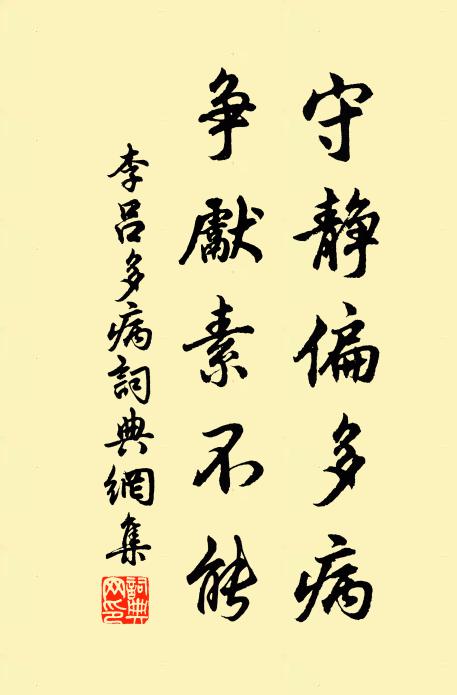 守静偏多病
争獻素不能
李吕多病詞典網集
詞典
网印